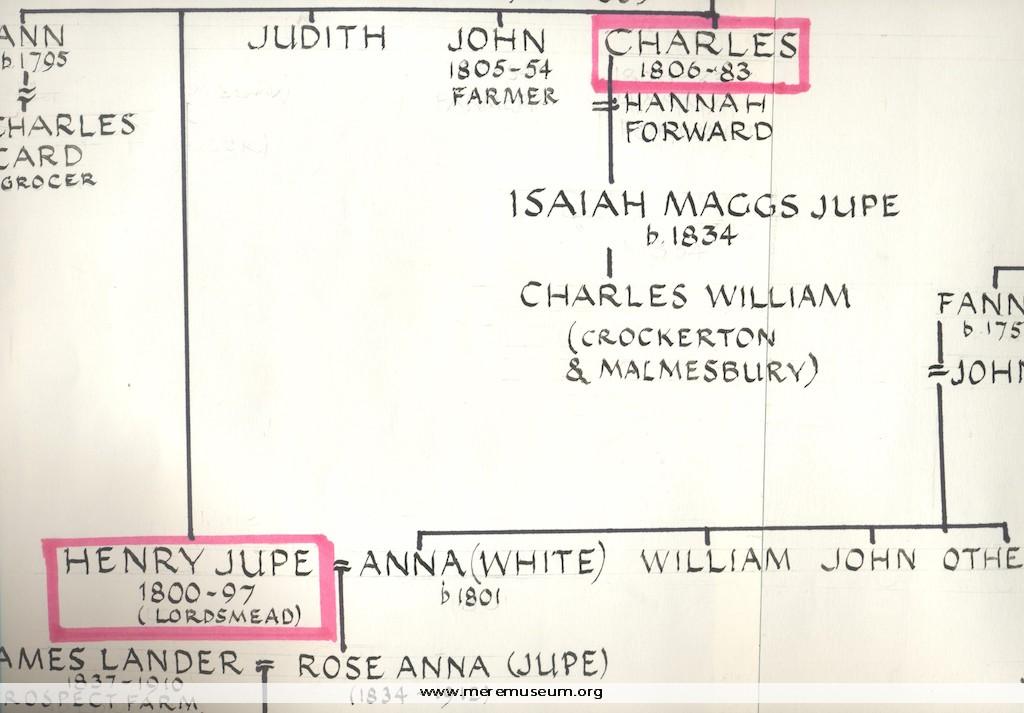 ANN
b. 1795
CHARLES
CARD
GROCER
JUDITH
JOHN
1805-54
FARMER
CHARLES
1806-83
= HANNAH
FORWARD
ISAIAH MAGGS JUPE
b. 1834
CHARLES WILLIAM
(CROCKERTON
& MALMESBURY)
FANN
b. 175
= JOHN
HENRY JUPE = ANNA (WHITE) WILLIAM JOHN OTHE
1800-97
b 1801
(LORDSMEAD)
AMES LANDER = ROSE ANNA (JUPE)
1837-1910
ROSPECT FARM
(1834
www.meremuseum.org